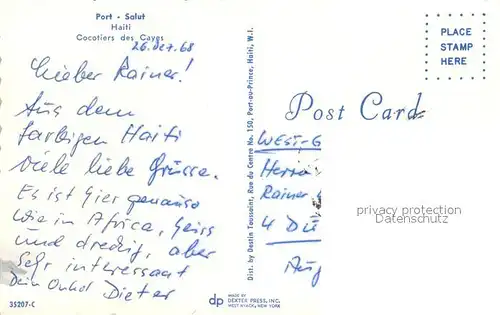 Port - Salut
Haiti
Cocotiers des Cayes
26. Dez. 68
Lieber Rainer!
Aus dem
farbigen Haiti
viele liebe Grüsse.
Es ist hier genauso
wie in Africa, heiss
und dreckig, aber
sehr interessant
Dein Onkel Dieter
35207-C
Dist. by Destin Toussaint, Rue du Centre No. 150, Port-au-Prince, Haiti, W.I.
dp MADE BY
DEXTER PRESS, INC.
WEST NYACK, NEW YORK
PLACE
STAMP
HERE
Post Card
WEST-G
Herrn
Rainer
4 Dü
Aug
privacy protection
Datenschutz